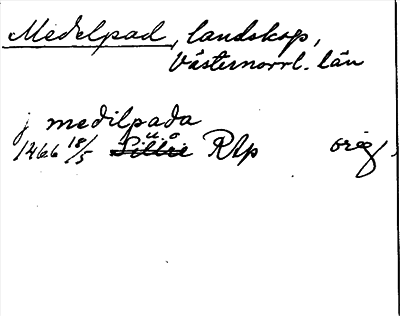 Medelpad, landskap,
Västernorrl. län
j medilpada
u å
1466 18/5 Sillre RAp orig.